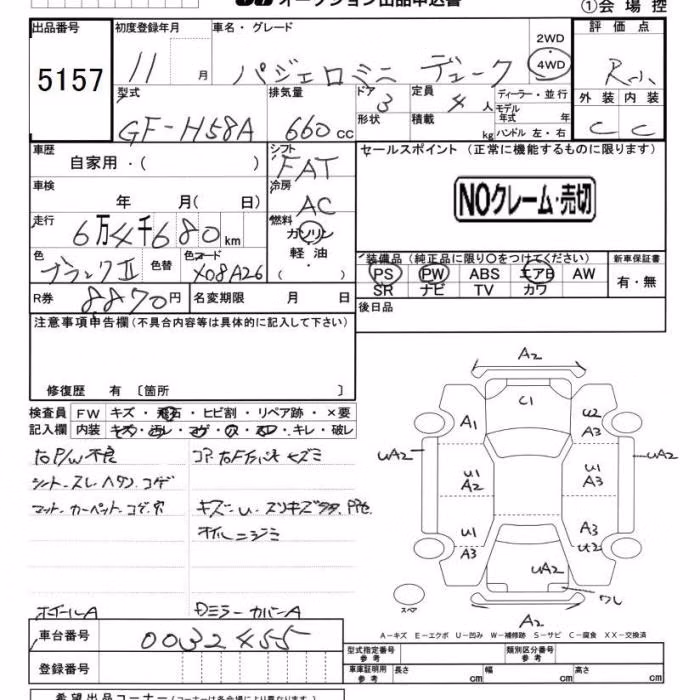 オークション出品申込書
①会場控
出品番号
5157
初度登録年月
11 月
車名・グレード
パジェロミニ デューク
2WD
4WD
評価点
R
外装 内装
C C
型式
GF-H58A
排気量
660 cc
ドア
3
形状
定員
4 人
積載
kg
ディーラー・並行
モデル年式 年
ハンドル 左・右
車歴
自家用・( )
シフト
FAT
セールスポイント (正常に機能するものに限ります)
NOクレーム・売切
車検
年 月( 日)
冷房
AC
走行
6万4千680 km
燃料
ガソリン
軽油
( )
色
ブラックⅡ
色替
色コード
X08A26
装備品 (純正品に限り○をつけてください)
PS PW ABS エアB AW
SR ナビ TV カワ
新車保証書
有・無
R券
8870円
名変期限 月 日
後日品
注意事項申告欄(不具合内容等は具体的に記入して下さい)
修復歴 有 〔箇所 〕
検査員記入欄
FW キズ・飛石・ヒビ割・リペア跡・×要
内装 キズ・汚レ・コゲ・穴・スレ・キレ・破レ
右P/W不良
シート・スレ ヘタリ コゲ
マット・カーペット・コゲ 穴
オイルニジミ
ホイールA
Dミラーカバー A
A2
C1
A1
U2
A3
UA2
U1
A2
U1
A3
UA2
U1
A3
A3
U2
UA2
ワレ
A2
スペア
A-キズ E-エクボ U-凹み W-補修跡 S-サビ C-腐食 XX-交換済
車台番号
0032455
登録番号
型式指定番号
参考
類別区分番号
参考
車庫証明用
参考
長さ cm
幅 cm
高さ cm
希望出品コーナー(コーナーは各会場により異なります)